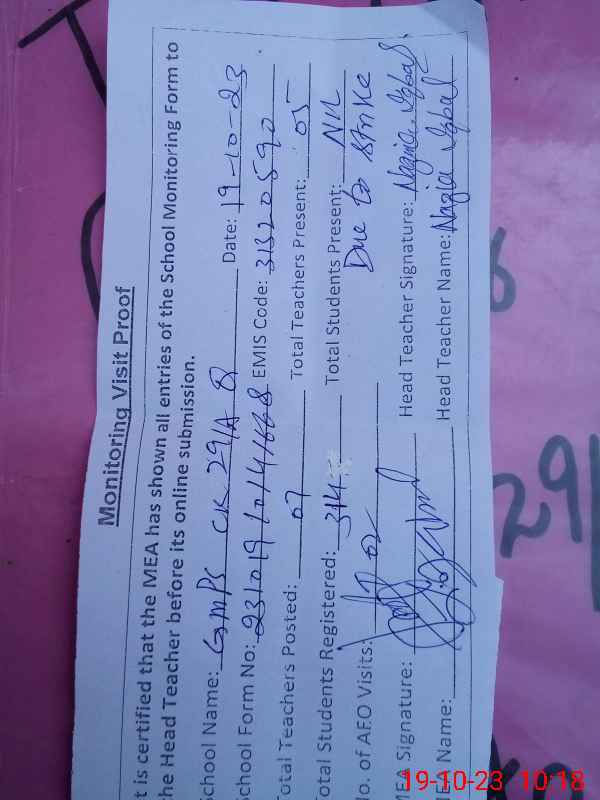 Monitoring Visit Proof
t is certified that the MEA has shown all entries of the School Monitoring Form to
he Head Teacher before its online submission.
chool Name: GMPS CK 291A 8 Date: 19-10-23
chool Form No: 23101910141668 EMIS Code: 31320590
otal Teachers Posted: 07 Total Teachers Present: 05
otal Students Registered: 314 Total Students Present: NIL
Due to strike
o. of AEO Visits: 02
MEA Signature: Head Teacher Signature: Nazia Iqbal
Name: Head Teacher Name: Nazia Iqbal
291
19-10-23 10:18